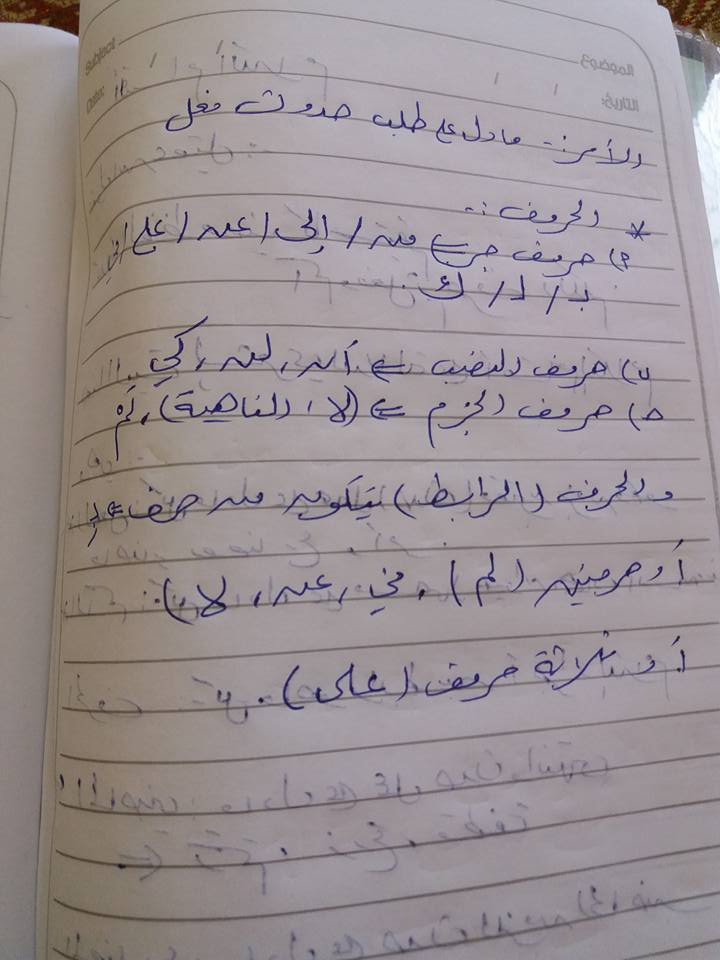 الموضوع: Subject:
التاريخ: / / Date:
الأمر:- ما دل على طلب حدوث فعل
* الحروف :-
٢) حروف جر ⇐ من / إلى / عن / على / في
بـ / لـ / ك
ب) حروف النصب ⇐ أن، لن، كي
ج) حروف الجزم ⇐ (لا، الناهية)، لم
والحرف (الرابط) يتكون من حرف ⇐
أو حرفين (لم)، في، عن، لا).
أو ثلاثة حروف (على).